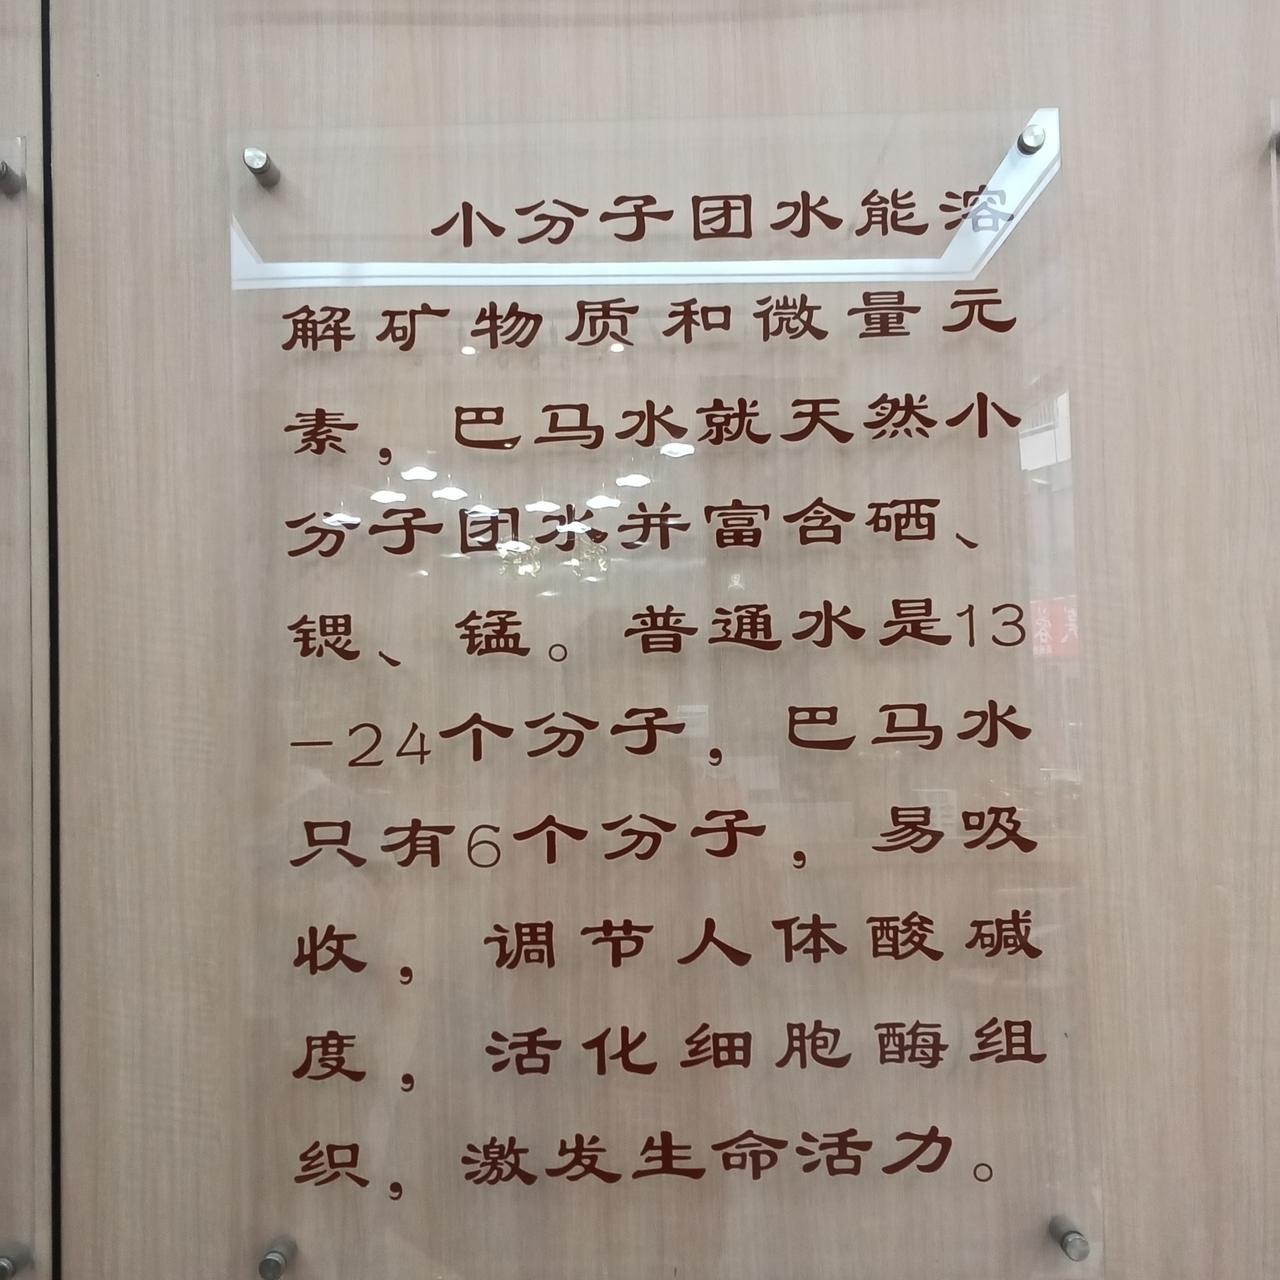 小分子团水能溶
解矿物质和微量元
素，巴马水就天然小
分子团水并富含硒、
锶、锰。普通水是13
-24个分子，巴马水
只有6个分子，易吸
收，调节人体酸碱
度，活化细胞酶组
织，激发生命活力。